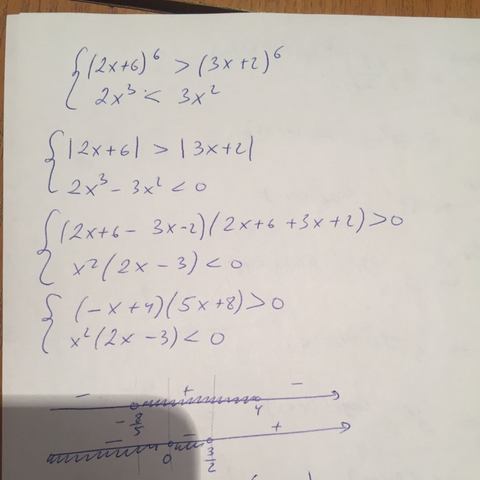 { (2x+6)^6 > (3x+2)^6
2x^3 < 3x^2
{ |2x+6| > |3x+2|
2x^3 - 3x^2 < 0
{ (2x+6 - 3x-2)(2x+6 +3x+2) > 0
x^2(2x-3) < 0
{ (-x+4)(5x+8) > 0
x^2(2x-3) < 0
- + -
-8/5 4
- - +
0 3/2